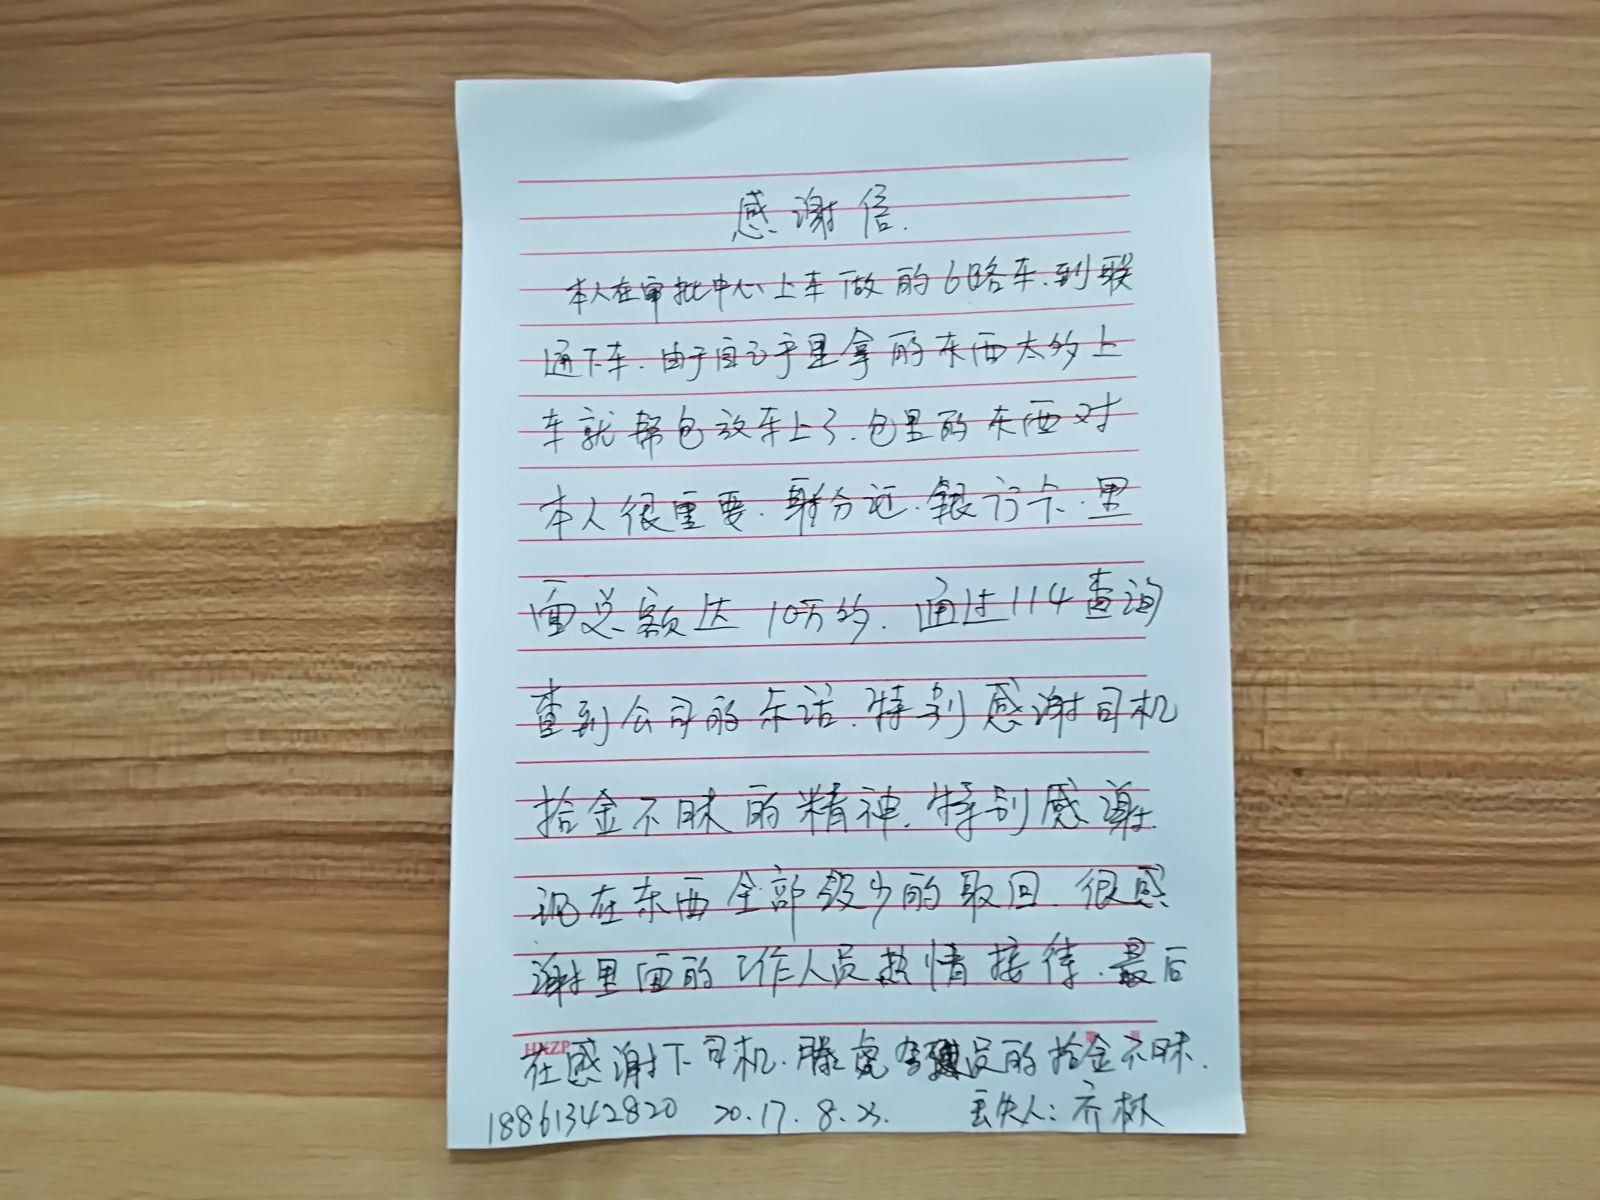 感谢信.
本人在审批中心上车做的6路车.到联
通下车.由于自己手里拿的东西太多上
车就帮包放车上了.包里的东西对
本人很重要.身份证.银行卡.里
面总额达10万多.通过114查询
查到公司的东话.特别感谢司机
拾金不昧的精神.特别感谢.
现在东西全部没少的取回.很感
谢里面的工作人员热情接待.最后
HXZP
在感谢下司机.滕虎 员的拾金不昧.
18861342820 20.17.8.23. 丢失人:齐林